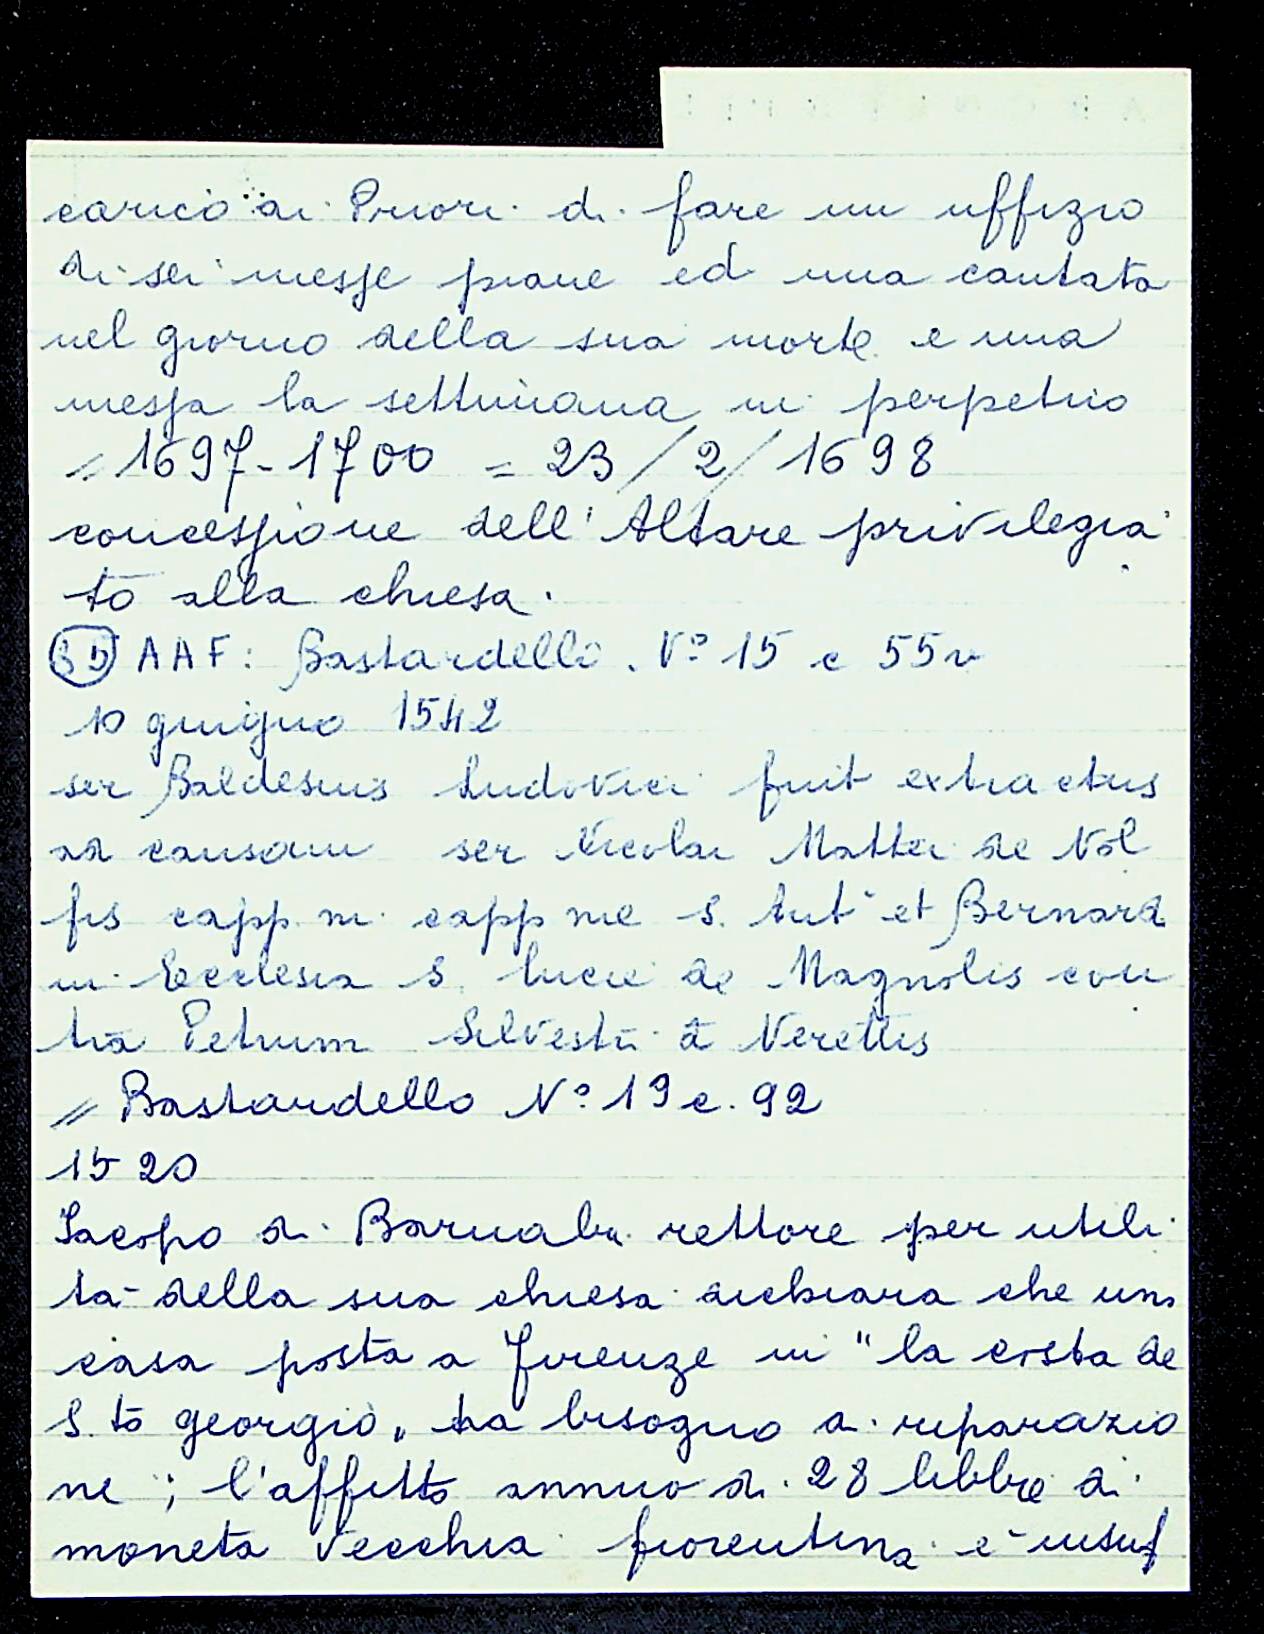 carico ai Priori di fare un uffizio
di sei messe piane ed una cantata
nel giorno della sua morte e una
messa la settimana in perpetuo
= 1697-1700 = 23/2/1698
concessione dell'Altare privilegia
to alla chiesa.
35 AAF: Bastardello. N° 15 c 55v
10 giugno 1542
ser Baldesius Ludovici fuit extractus
ad causam ser Nicolai Mattei de Nol
fis capp. ni capp ne S. Ant° et Bernard
in Ecclesia S. Lucie de Magnolis con
tra Petrum Silvestri de Verettis
= Bastardello N° 19 c. 92
1520
Iacopo di Barnaba rettore per utili
tà della sua chiesa dichiara che una
casa posta a Firenze in "la costa de
S.to Georgio" ha bisogno di riparazio
ne; l'affitto annuo di 28 libbre di
moneta vecchia fiorentina è insuf